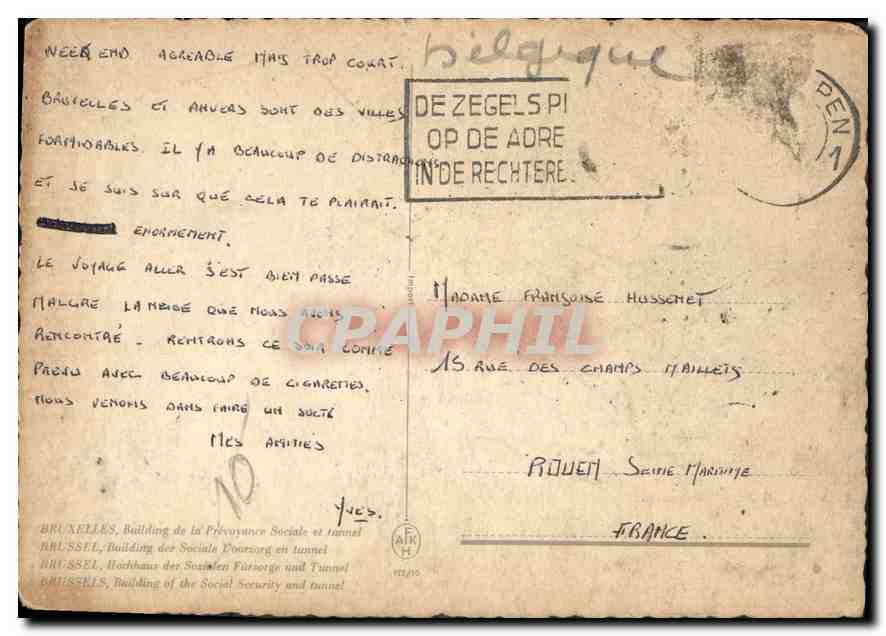 WEEK END AGREABLE MAIS TROP COURT.
BRUXELLES ET ANVERS SONT DES VILLES
FORMIDABLES. IL Y A BEAUCOUP DE DISTRACTIONS
ET JE SUIS SUR QUE CELA TE PLAIRAIT.
ENORMEMENT.
LE VOYAGE ALLER S'EST BIEN PASSE
MALGRE LA NEIGE QUE NOUS AVONS
RENCONTRÉ - RENTRONS CE SOIR COMME
PREVU AVEC BEAUCOUP DE CIGARETTES.
NOUS VENONS D'EN FAIRE UN
MES AMITIES
YVES.
10
BRUXELLES, Building de la Prévoyance Sociale et tunnel
BRUSSEL, Building der Sociale Voorzorg en tunnel
BRUSSEL, Hochhaus der Sozialen Fürsorge und Tunnel
BRUSSELS, Building of the Social Security and tunnel
Belgique
DE ZEGELS PI
OP DE ADRE
IN DE RECHTERE
PEN
1
Import
MADAME FRANÇOISE HUSSENET
15 RUE DES CHAMPS MAILLETS
ROUEN SEINE MARITIME
FRANCE.
F
A K
H
CPAPHIL